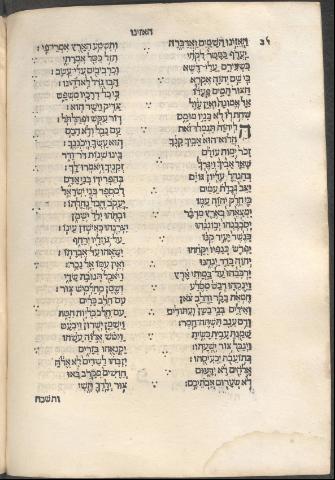 האזינו
לב
האזינו השמים ואדברה ותשמע הארץ אמרי פי:
יערף כמטר לקחי תזל כטל אמרתי
כשעירם עלי דשא וכרביבים עלי עשב:
כי שם יהוה אקרא הבו גדל לאלהינו:
הצור תמים פעלו כי כל דרכיו משפט
אל אמונה ואין עול צדיק וישר הוא:
שחת לו לא בניו מומם דור עקש ופתלתל:
ה ליהוה תגמלו זאת עם נבל ולא חכם
הלוא הוא אביך קנך הוא עשך ויכננך:
זכר ימות עולם בינו שנות דור ודר
שאל אביך ויגדך זקניך ויאמרו לך:
בהנחל עליון גוים בהפרידו בני אדם
יצב גבלת עמים למספר בני ישראל:
כי חלק יהוה עמו יעקב חבל נחלתו:
ימצאהו בארץ מדבר ובתהו ילל ישמן
יסבבנהו יבוננהו יצרנהו כאישון עינו:
כנשר יעיר קנו על גוזליו ירחף
יפרש כנפיו יקחהו ישאהו על אברתו:
יהוה בדד ינחנו ואין עמו אל נכר:
ירכבהו על במתי ארץ ויאכל תנובת שדי
וינקהו דבש מסלע ושמן מחלמיש צור:
חמאת בקר וחלב צאן עם חלב כרים
ואילים בני בשן ועתודים עם חלב כליות חטה
ודם ענב תשתה חמר: וישמן ישרון ויבעט
שמנת עבית כשית ויטש אלוה עשהו
וינבל צור ישעתו: יקנאהו בזרים
בתועבת יכעיסהו: יזבחו לשדים לא אלה
אלהים לא ידעום חדשים מקרב באו
לא שערום אבתיכם: צור ילדך תשי
ותשכח